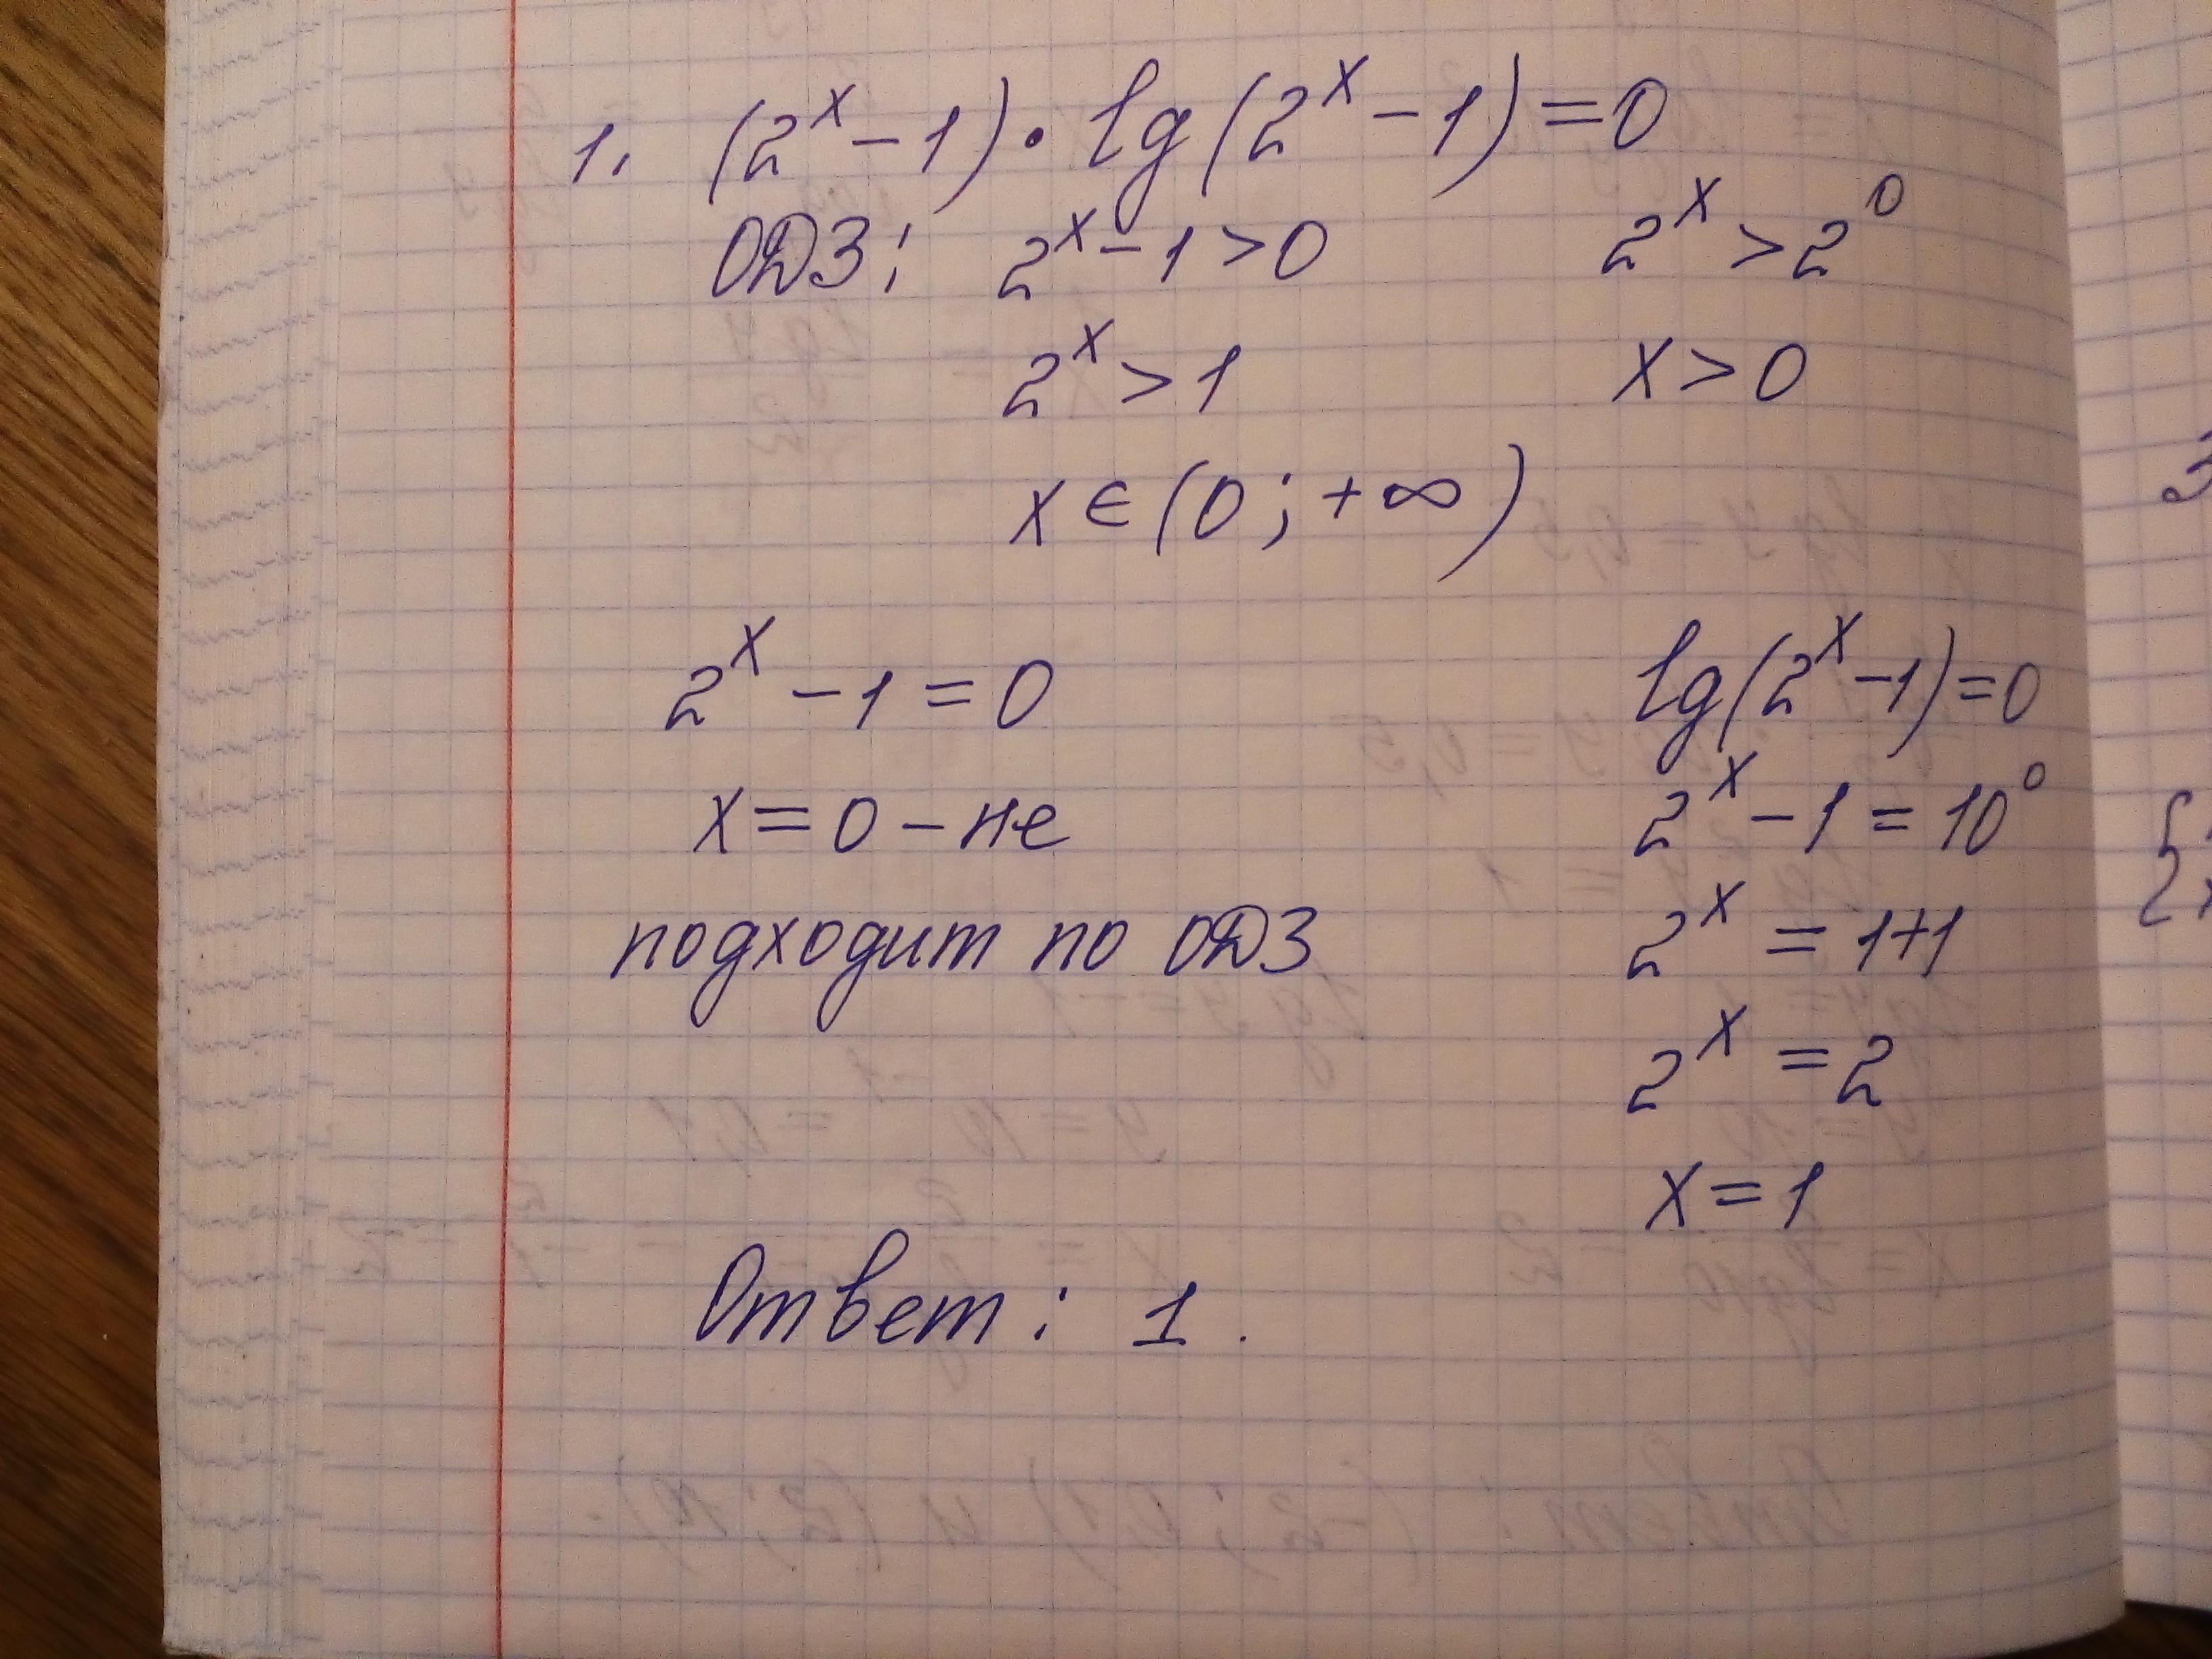 1. (2^x - 1) · lg(2^x - 1) = 0
ОДЗ: 2^x - 1 > 0    2^x > 2^0
2^x > 1    x > 0
x ∈ (0; +∞)
2^x - 1 = 0    lg(2^x - 1) = 0
x = 0 - не    2^x - 1 = 10^0
подходит по ОДЗ    2^x = 1+1
2^x = 2
x = 1
Ответ: 1.